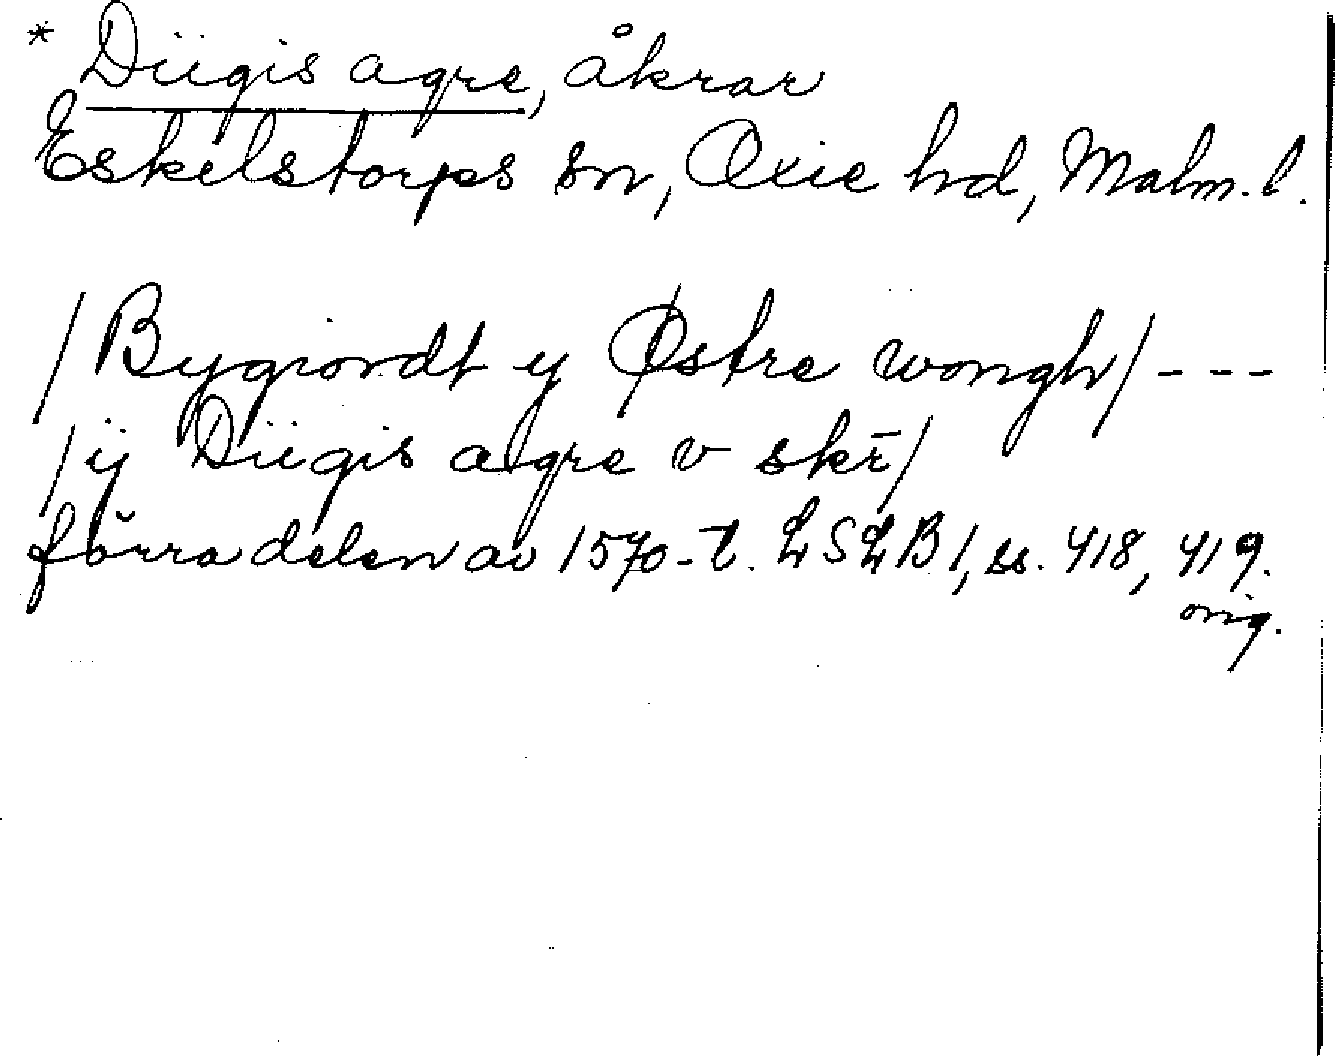 * Diigis agre, åkrar
Eskelstorps sn, Oxie hd, Malm. l.
/Bygiordt y Østre wongh/ ---
/ÿ Diigis agre v skr̄/
förra delen av 1570-t. LSLB 1, ss. 418, 419.
orig.